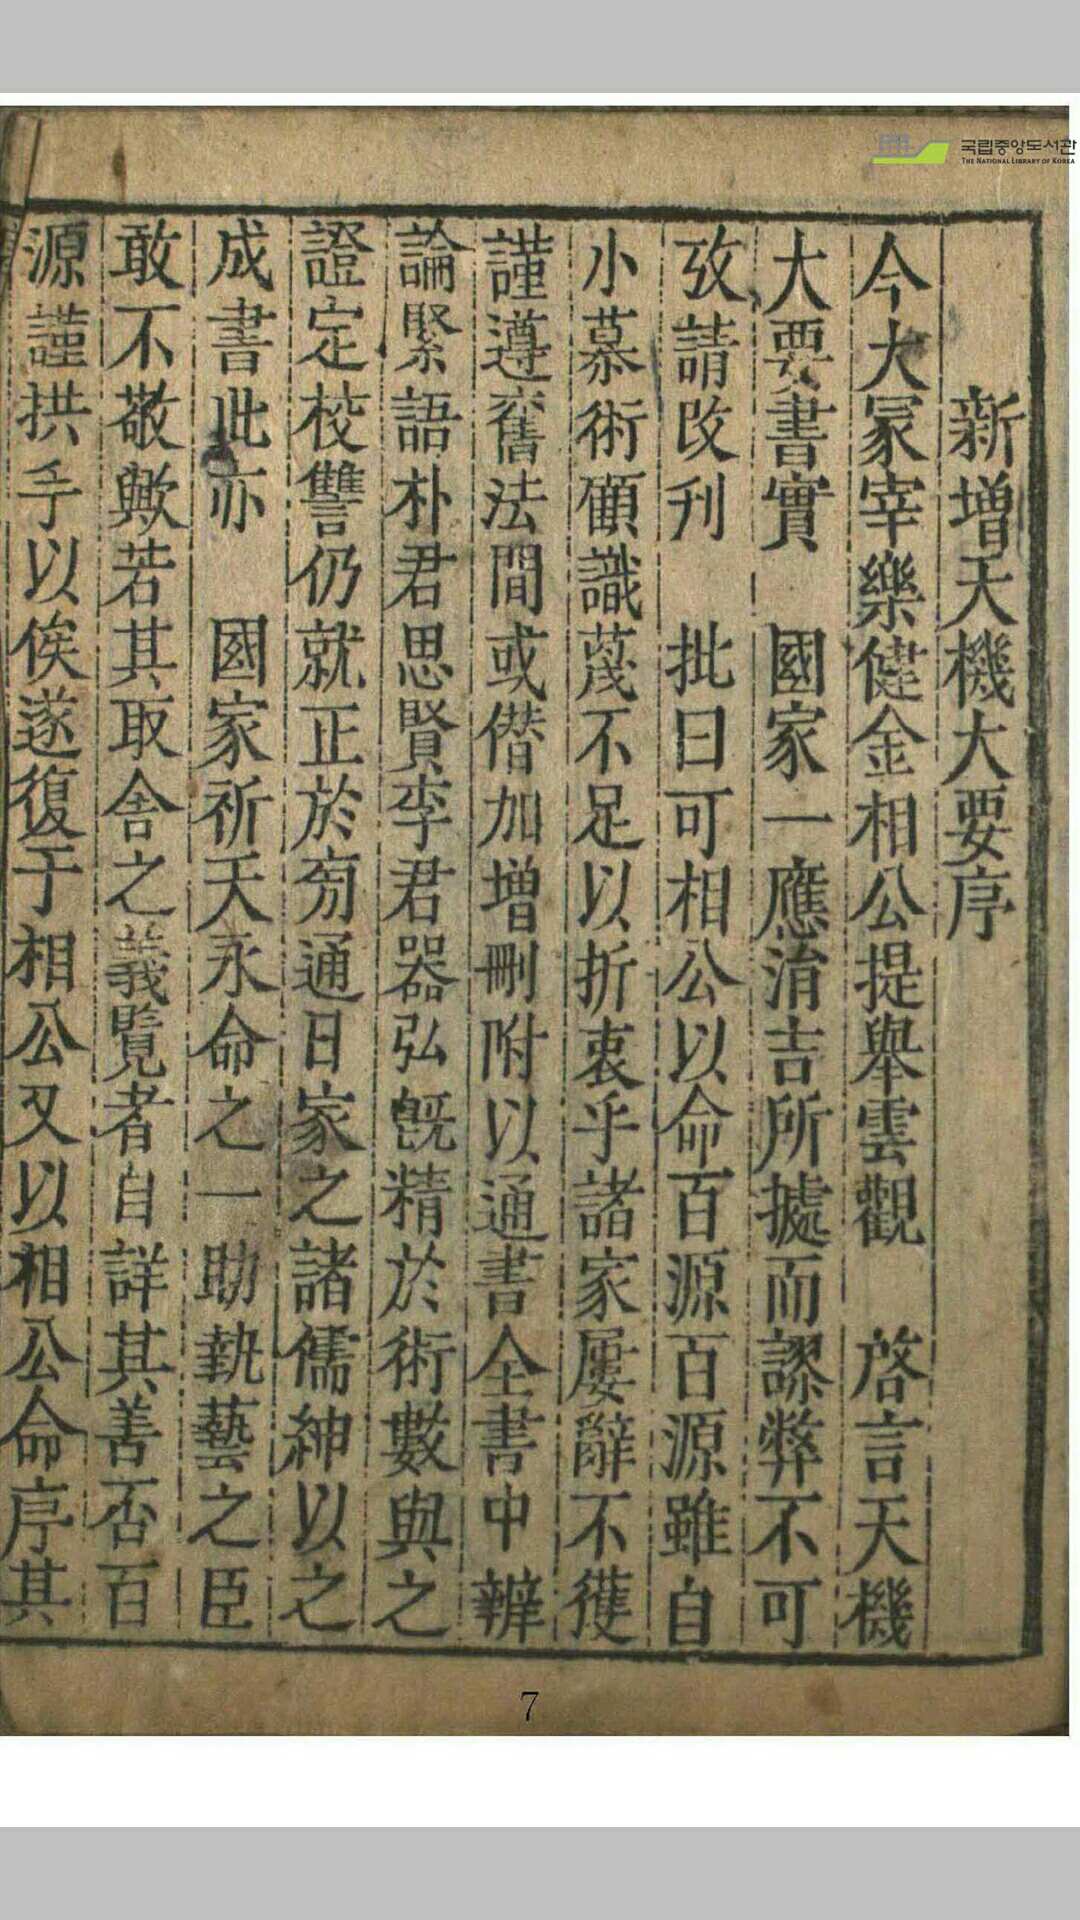 국립중앙도서관
THE NATIONAL LIBRARY OF KOREA
新增天機大要序
今大冢宰樂健金相公提舉雲觀 啓言天機
大要書實 國家一應涓吉所據而謬弊不可
攷請改刋 批曰可相公以命百源百源雖自
小慕術顧識蔑不足以折衷乎諸家屢辭不獲
謹遵舊法間或僭加增刪附以通書全書中辨
論緊語朴君思賢李君器弘旣精於術數與之
證定校讐仍就正於窮通日家之諸儒紳以之
成書此亦 國家祈天永命之一助執藝之臣
敢不敬歟若其取舍之義覽者自詳其善否百
源謹拱手以俟遂復于相公又以相公命序其
7